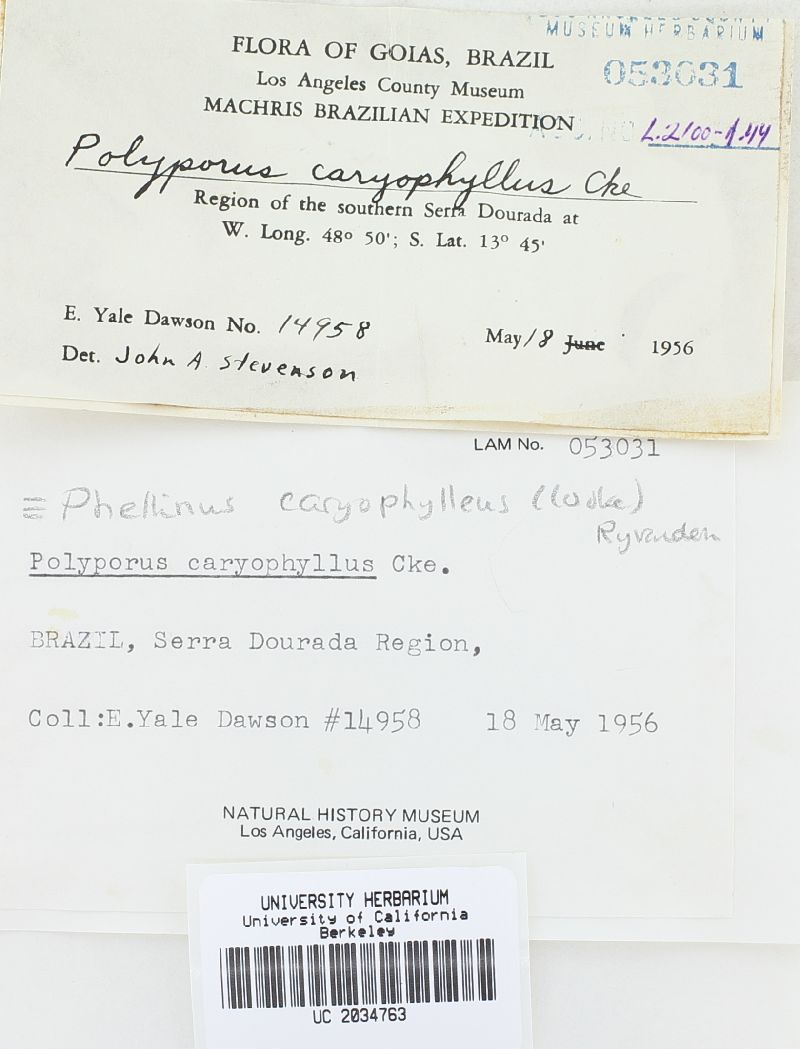 MUSEUM HERBARIUM
FLORA OF GOIAS, BRAZIL
053031
Los Angeles County Museum
MACHRIS BRAZILIAN EXPEDITION
L.2100-1.44
Polyporus caryophyllus Cke
Region of the southern Serra Dourada at
W. Long. 48º 50'; S. Lat. 13º 45'
E. Yale Dawson No. 14958 May 18 June 1956
Det. John A. Stevenson
LAM No. 053031
≡ Phellinus caryophylleus (Cooke)
Ryvarden
Polyporus caryophyllus Cke.
BRAZIL, Serra Dourada Region,
Coll:E.Yale Dawson #14958 18 May 1956
NATURAL HISTORY MUSEUM
Los Angeles, California, USA
UNIVERSITY HERBARIUM
University of California
Berkeley
UC 2034763